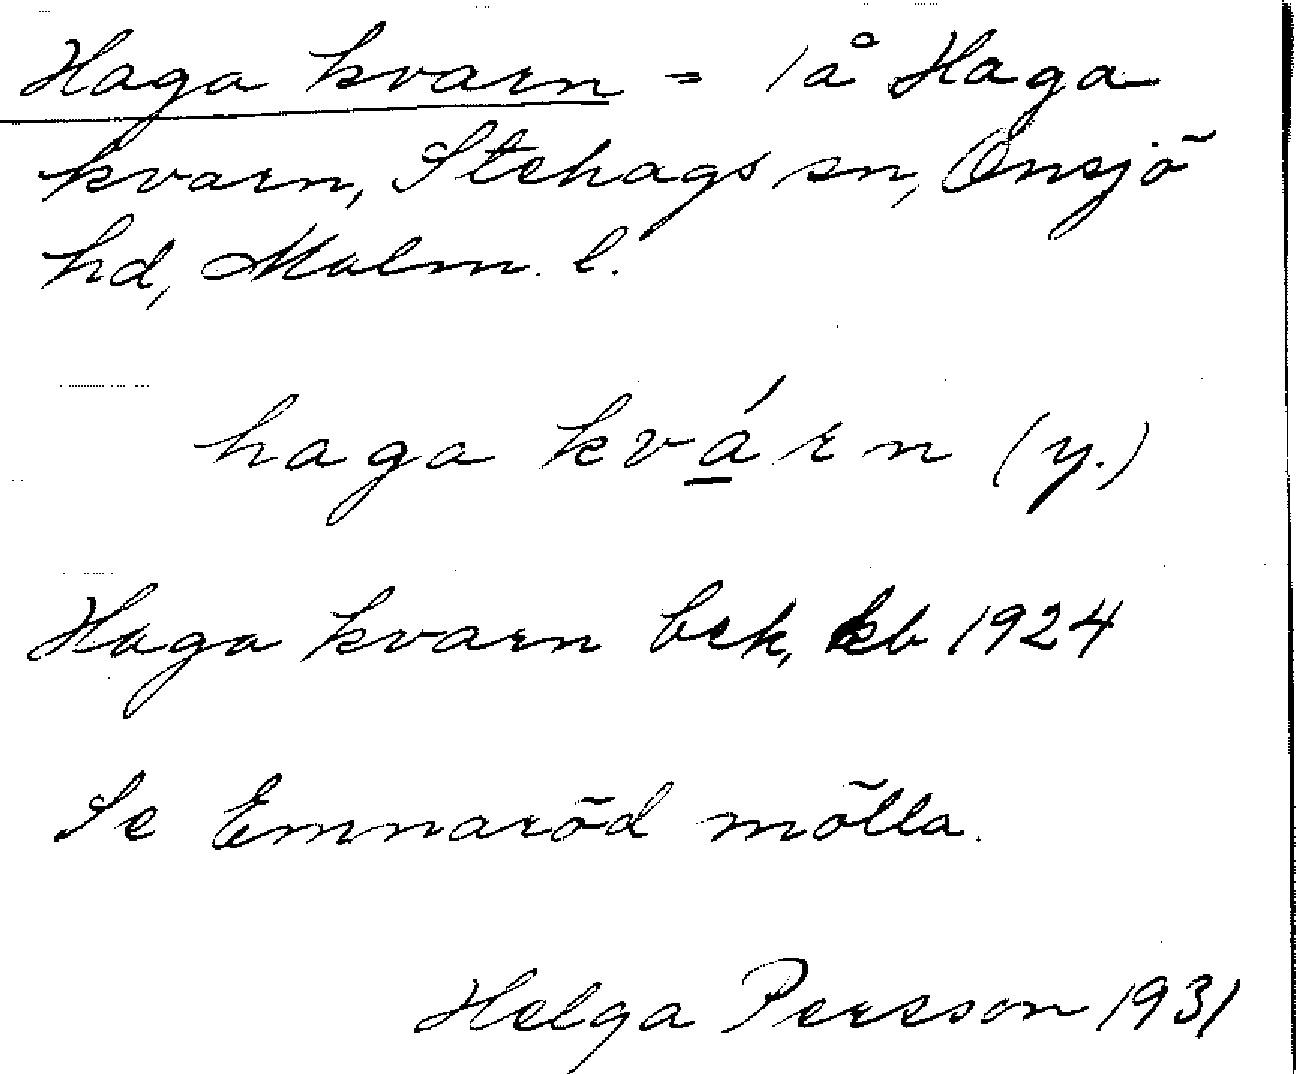 Haga kvarn = 1å Haga
kvarn, Stehags sn, Onsjö
hd, Malm. l.
haga kvá̱rn (y.)
Haga kvarn bek, kb 1924
Se Emnaröd mölla.
Helga Persson 1931